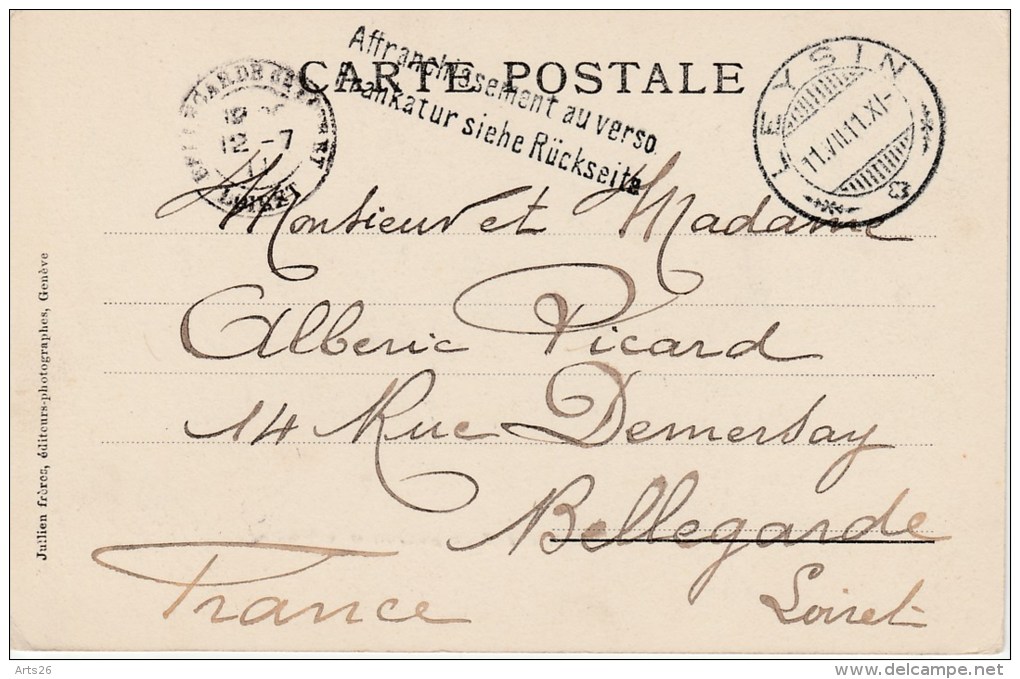 CARTE POSTALE
Affranchissement au verso
Frankatur siehe Rückseite
LEYSIN
11.VII.11.XI-
12 -7
11
LOIRET
Monsieur et Madame
Alberic Picard
14 Rue Demersay
Bellegarde
Loiret
France
Jullien frères, éditeurs-photographes, Genève
Arts26
www.delcampe.net